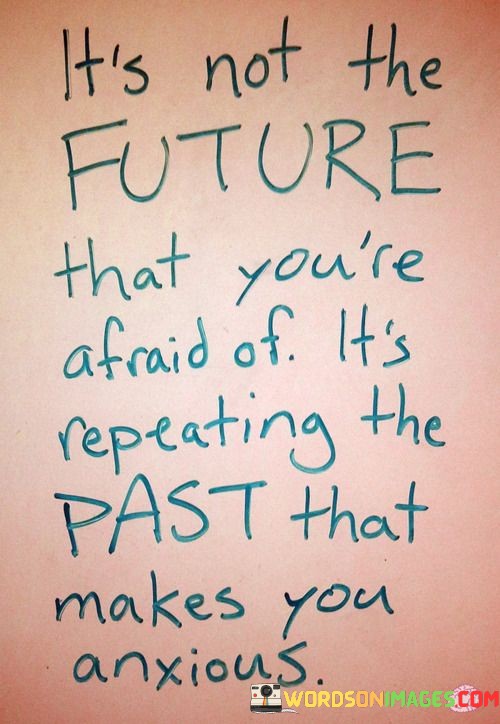 It's not the
FUTURE
that you're
afraid of. It's
repeating the
PAST that
makes you
anxious.
WORDSONIMAGES.COM